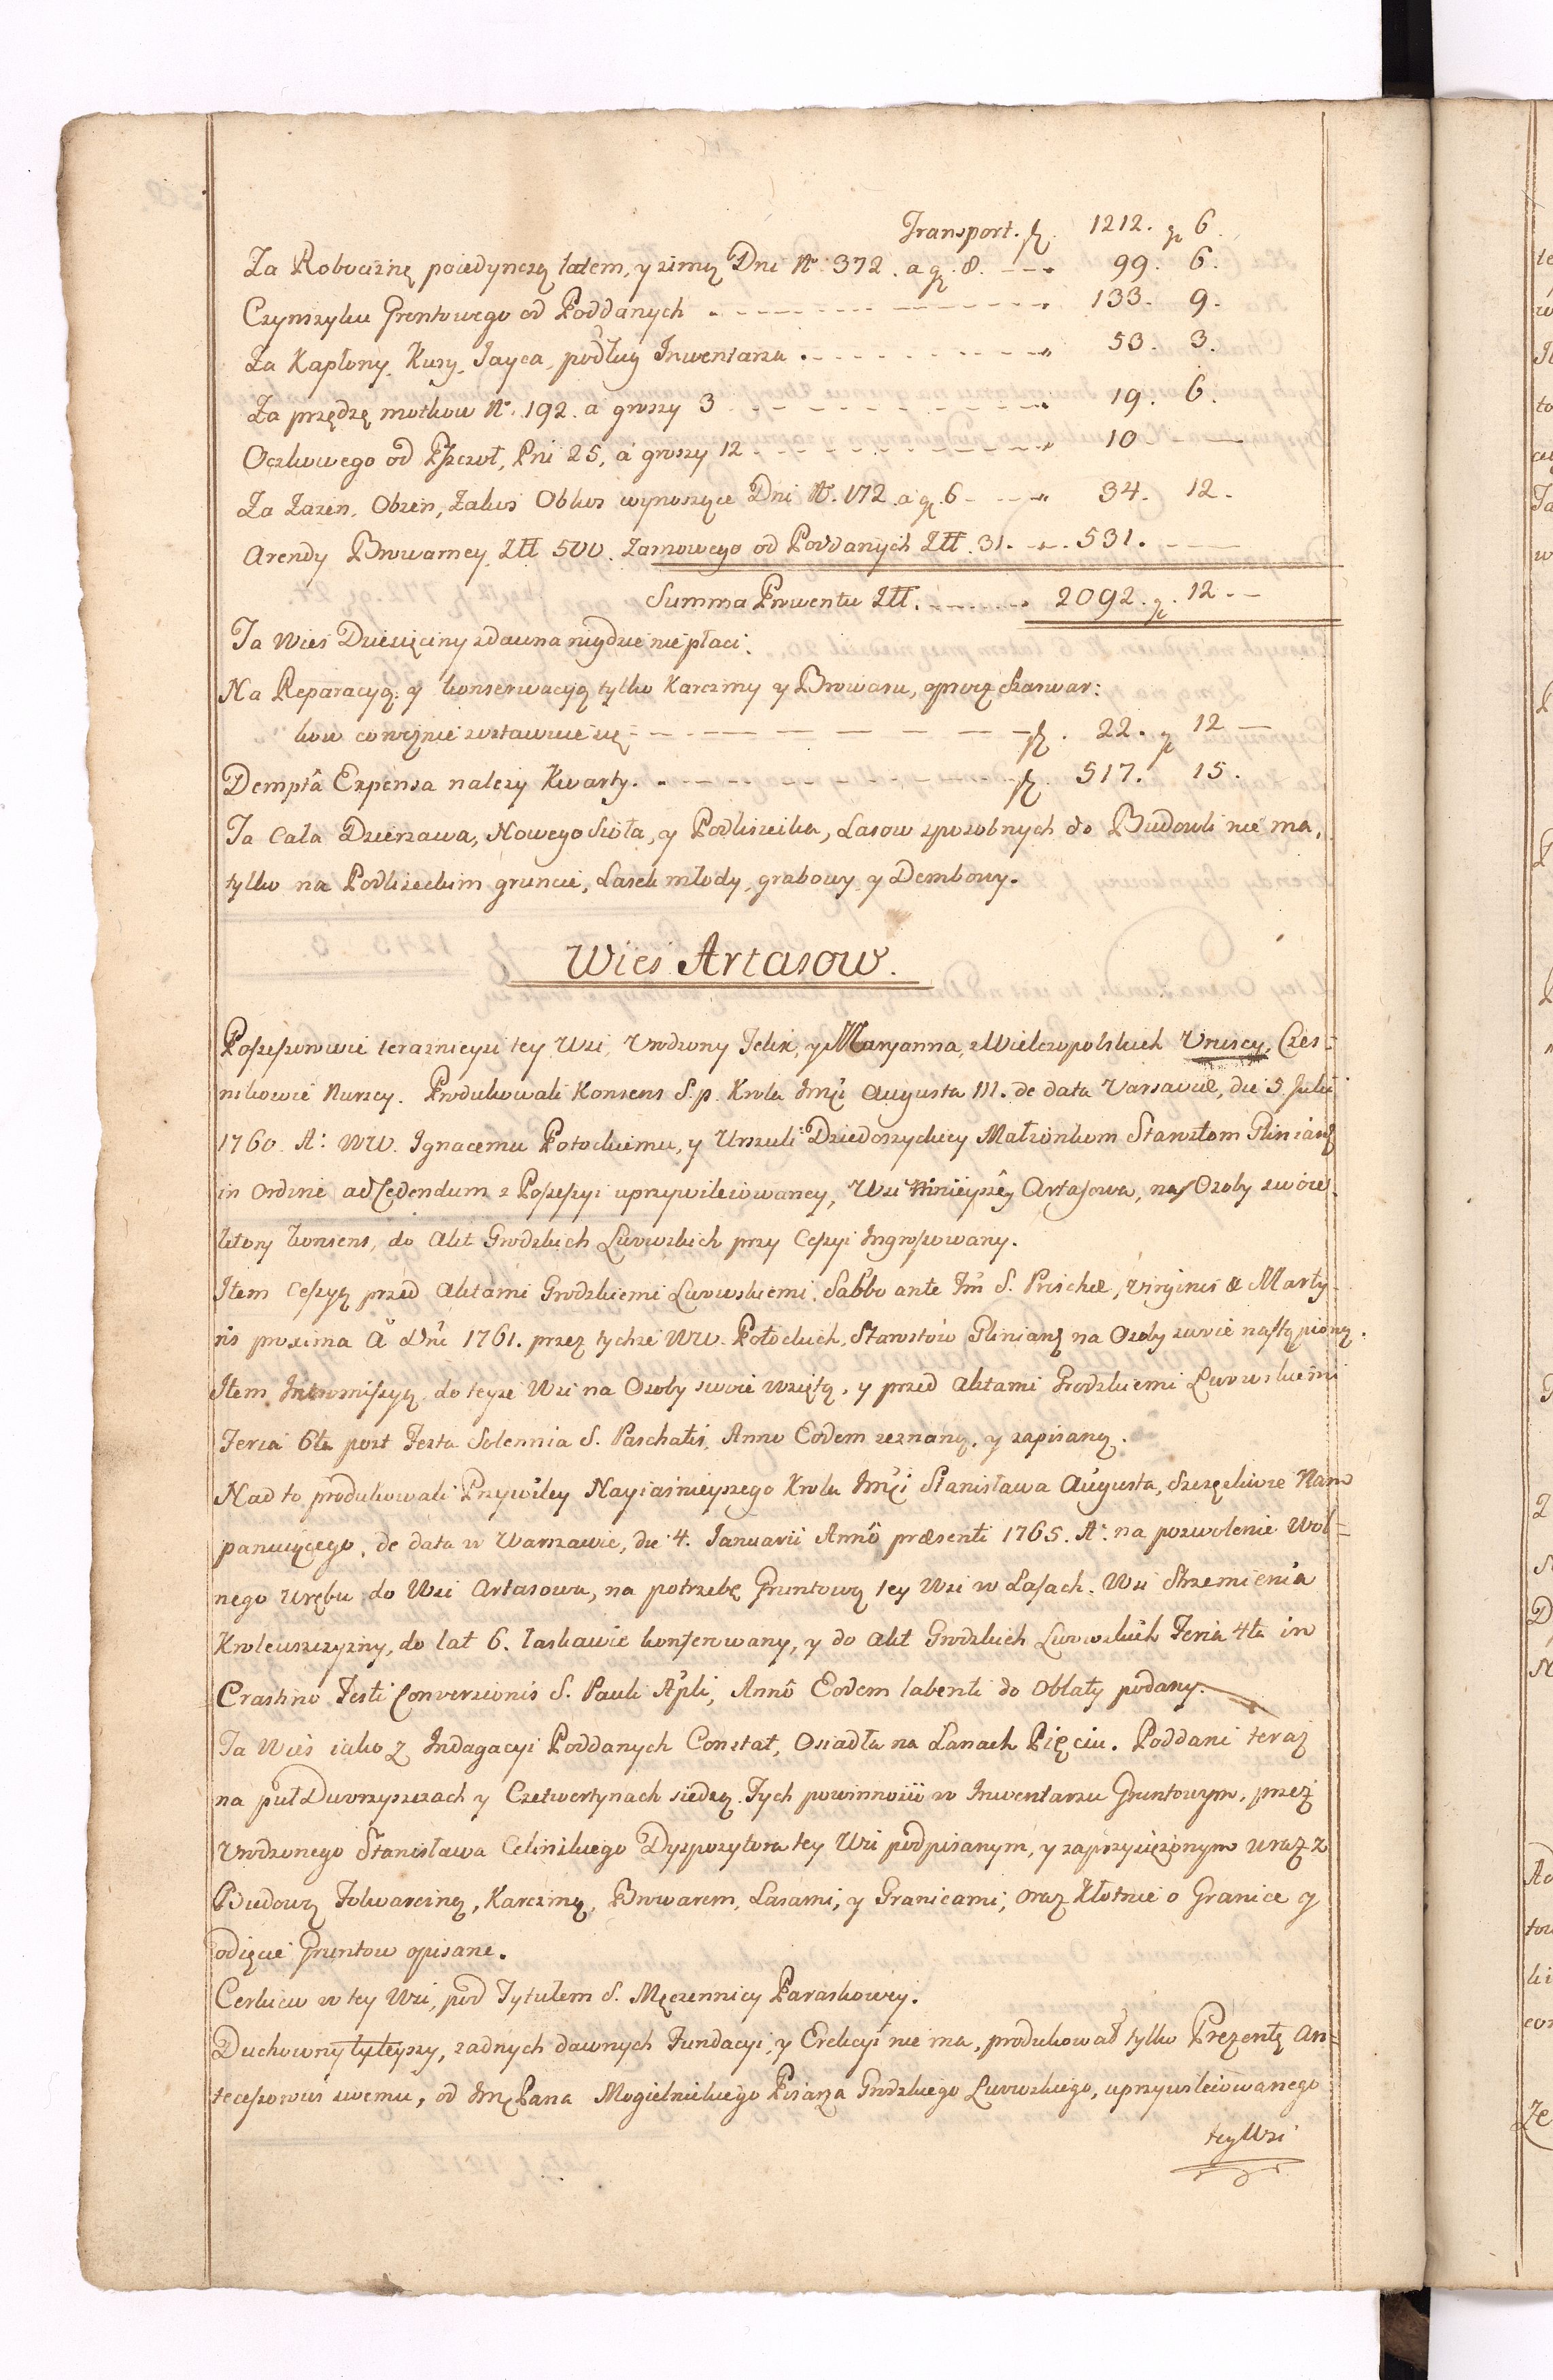 Transport. fl. 1212. gr 6.
Za Robociznę poiedynczą latem, y zimą Dni No. 372. a gr. 8. --- 99. 6.
Czynszyku Gruntowego od Poddanych --- 133. 9.
Za Kapłony, Kury, Jayca, podług Inwentarza --- 53. 3.
Za przędzę motkow No. 192. a groszy 3 --- 19. 6.
Oczkowego od Pszczoł, Pni 25, á groszy 12 --- 10 —
Za Zazen, Obzen, Zakos Obkos wynoszące Dni No. 172. a gr. 6 --- 34. 12.
Arendy Browarney Złł 500. Zarnowego od Poddanych Złł. 31. --- 531. —
Summa Prowentu Złł. --- 2092. gr. 12. —
Ta Wies Dziesięciny zdawna nigdzie nie płaci.
Na Reparacyą, y konserwacyą tylko Karczmy y Browaru, oprocz szarwar:
kow corocznie zostawuie się --- fl. 22. gr 12 —
Demptâ Expensa nalezy Kwarty. --- fl. 517. 15.
Ta Cała Dzierzawa, Nowego Sioła, y Podliseika, Lasow sposobnych do Budowli nie ma,
tylko na Podliseckim gruncie, Lasek młody, grabowy y Dembowy.
Wies Artasow.
Possessorowie terazniejsi tey Wsi, Urodzony Felix, y Maryanna, z Wielopolskich Uruscy, Czes-
nikowie Nurscy. Produkowali Konsens S. p. Krola Jmci Augusta III. de data Varsaviæ, die 5 Julii
1760. A: WW. Ignacemu Potockiemu, y Urszuli Dziedoszyckiey Małzonkom Starostom Glinians
in Ordine ad Cedendum z Possessyi uprzywileiowaney, Wsi ninieyszey Artasowa, na Osoby swoie
ktory konsens, do Akt Grodzkich Lwowskich przy Cessyi Ingrossowany.
Item Cessyą przed Aktami Grodzkiemi Lwowskiemi, Sabbo ante Fm S. Priscæ, Virginis & Marty-
ris proxima A Dni 1761. przez tychze WW. Potockich, Starostow Glinians na Osoby swoie nastąpioną.
Item Intromissyą do teyze Wsi na Osoby swoie wziętą, y przed Aktami Grodzkiemi Lwowskiemi
Feria 6ta post Festa Solennia S. Paschatis, Anno Eodem zeznaną, y zapisaną.
Nad to produkowali Przywiley Nayiasnieyszego Krola Jmci Stanisława Augusta, Szczęsliwie Nam
panuiącego, de data w Warszawie, die 4. Januarii Annô præsenti 1765. A: na pozwolenie Wol-
nego Wrębu do Wsi Artasowa, na potrzebę Gruntową tey Wsi w Lasach Wsi Strzemienia
Krolewszczyzny, do lat 6. łaskawie konferowany, y do Akt Grodzkich Lwowskich Feria 4ta in
Crastino Festi Conversionis S. Pauli Apli, Annô Eodem labenti do Oblaty podany.
Ta Wies iako z Indagacyi Poddanych Constat, Osiadła na Łanach Pięciu. Poddani teraz
na puł Dworzyszczach y Czetwertynach siedzą. Tych powinnosci w Inwentarzu Gruntowym, przez
Urodzonego Stanisława Celinskiego Dyspozytora tey Wsi podpisanym, y zaprzysięzonym wraz z
Budową Folwarczną, Karczmą, Browarem, Lasami, y Granicami, oraz Kłotnie o Granice y
odięcie Gruntow opisane.
Cerkiew w tey Wsi, pod Tytułem S. Męczennicy Paraskowiy.
Duchowny tuteyszy, zadnych dawnych Fundacyi, y Erekcyi nie ma, produkował tylko Prezentę An-
tecessorowi swemu, od Jmć Pana Mogielnickiego Pisarza Grodzkiego Lwowskiego, uprzywileiowanego
tey Wsi